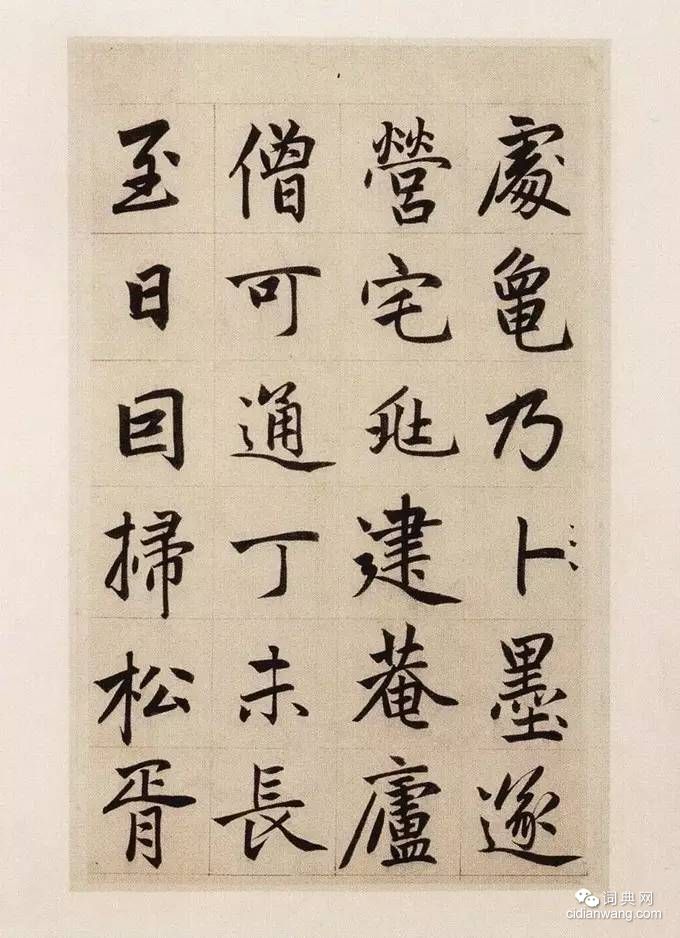 處龜乃卜墨遂
營宅兆建菴廬
僧可通丁未長
至日囙掃松胥
词典网
cidianwang.com